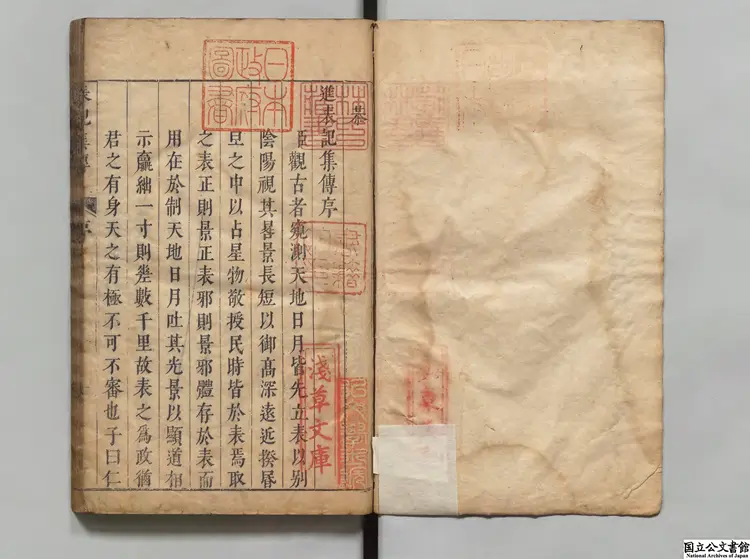 日本
政府
圖書
進表記集傳序
臣觀古者窺測天地日月皆先立表以別
陰陽視其晷景長短以御高深遠近揆昏
旦之中以占星物敬授民時皆於表焉取
之表正則景正表邪則景邪體存於表而
用在於制天地日月吐其光景以顯道相
示麤絀一寸則幾數千里故表之爲政猶
君之有身天之有極不可不審也子曰仁
淺草文庫
表記集傳
序
国立公文書館
National Archives of Japan